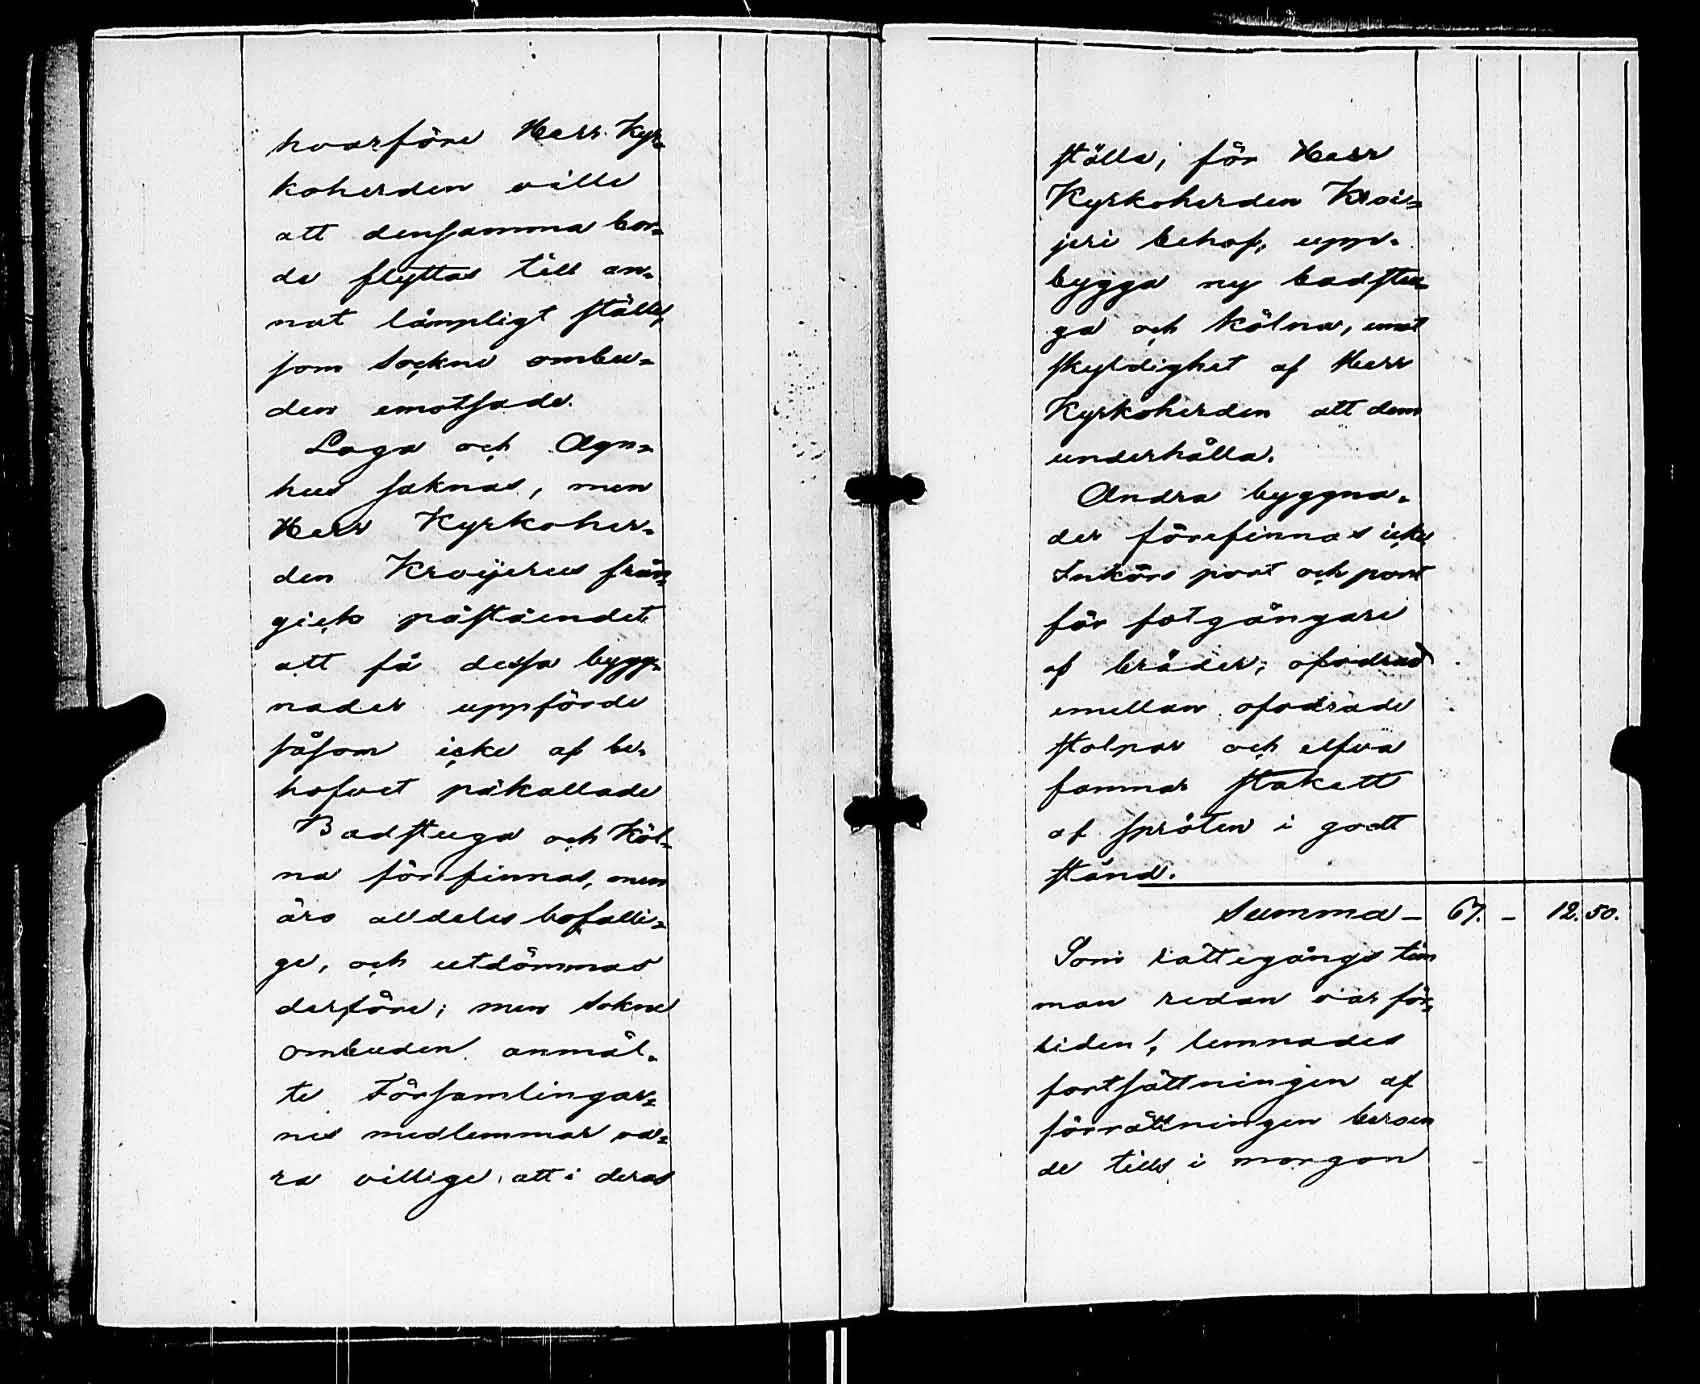 hvarföre Herr Kyr=
koherden ville
att densamma bor=
de flyttas till an=
nat lämpligt ställe,
som Sockne ombu=
den emotsade.
Loga och Agn=
hus saknas, men
Herr Kyrkoher=
den Kroijerus från=
gick påståendet
att få dessa bygg=
nader uppförde
såsom icke af be=
hofvet påkallade
Badstuga och Köl=
na förefinnas, men
äro alldeles bofälli=
ge, och utdömmas
derföre; men Sokne
ombuden anmäl=
te Församlingar=
nes medlemmar va=
ra villige att i deras
ställe, för Herr
Kyrkoherden Kroi=
jeri behof, upp=
bygga ny badstu=
ga och kölna, emot
skyldighet af Herr
Kyrkoherden att dem
underhålla.
Andra byggna=
der förefinnas icke.
Inkörs port och port
för fotgångare
af bräder, ofodrad
emellan ofodrade
stolpar och elfva
famnar stakett
af spröten i godt
stånd.
Summa – 67. – 12.50.
Som rättegångs tim
man redan var för=
liden, lemnades
fortsättningen af
förrättningen beroen
de tills i morgon